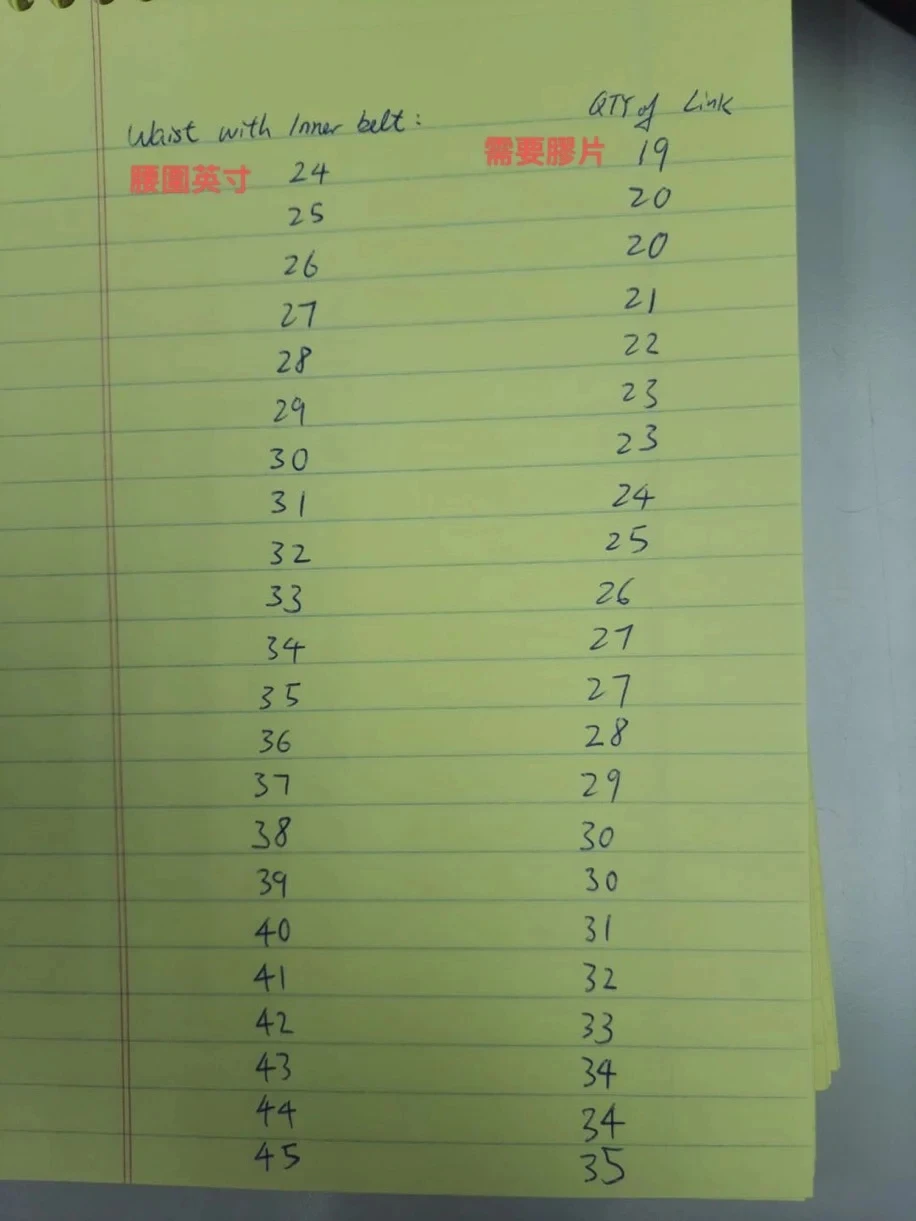 Waist with Inner belt: QTY of Link
腰圍英寸 24 需要膠片 19
25 20
26 20
27 21
28 22
29 23
30 23
31 24
32 25
33 26
34 27
35 27
36 28
37 29
38 30
39 30
40 31
41 32
42 33
43 34
44 34
45 35